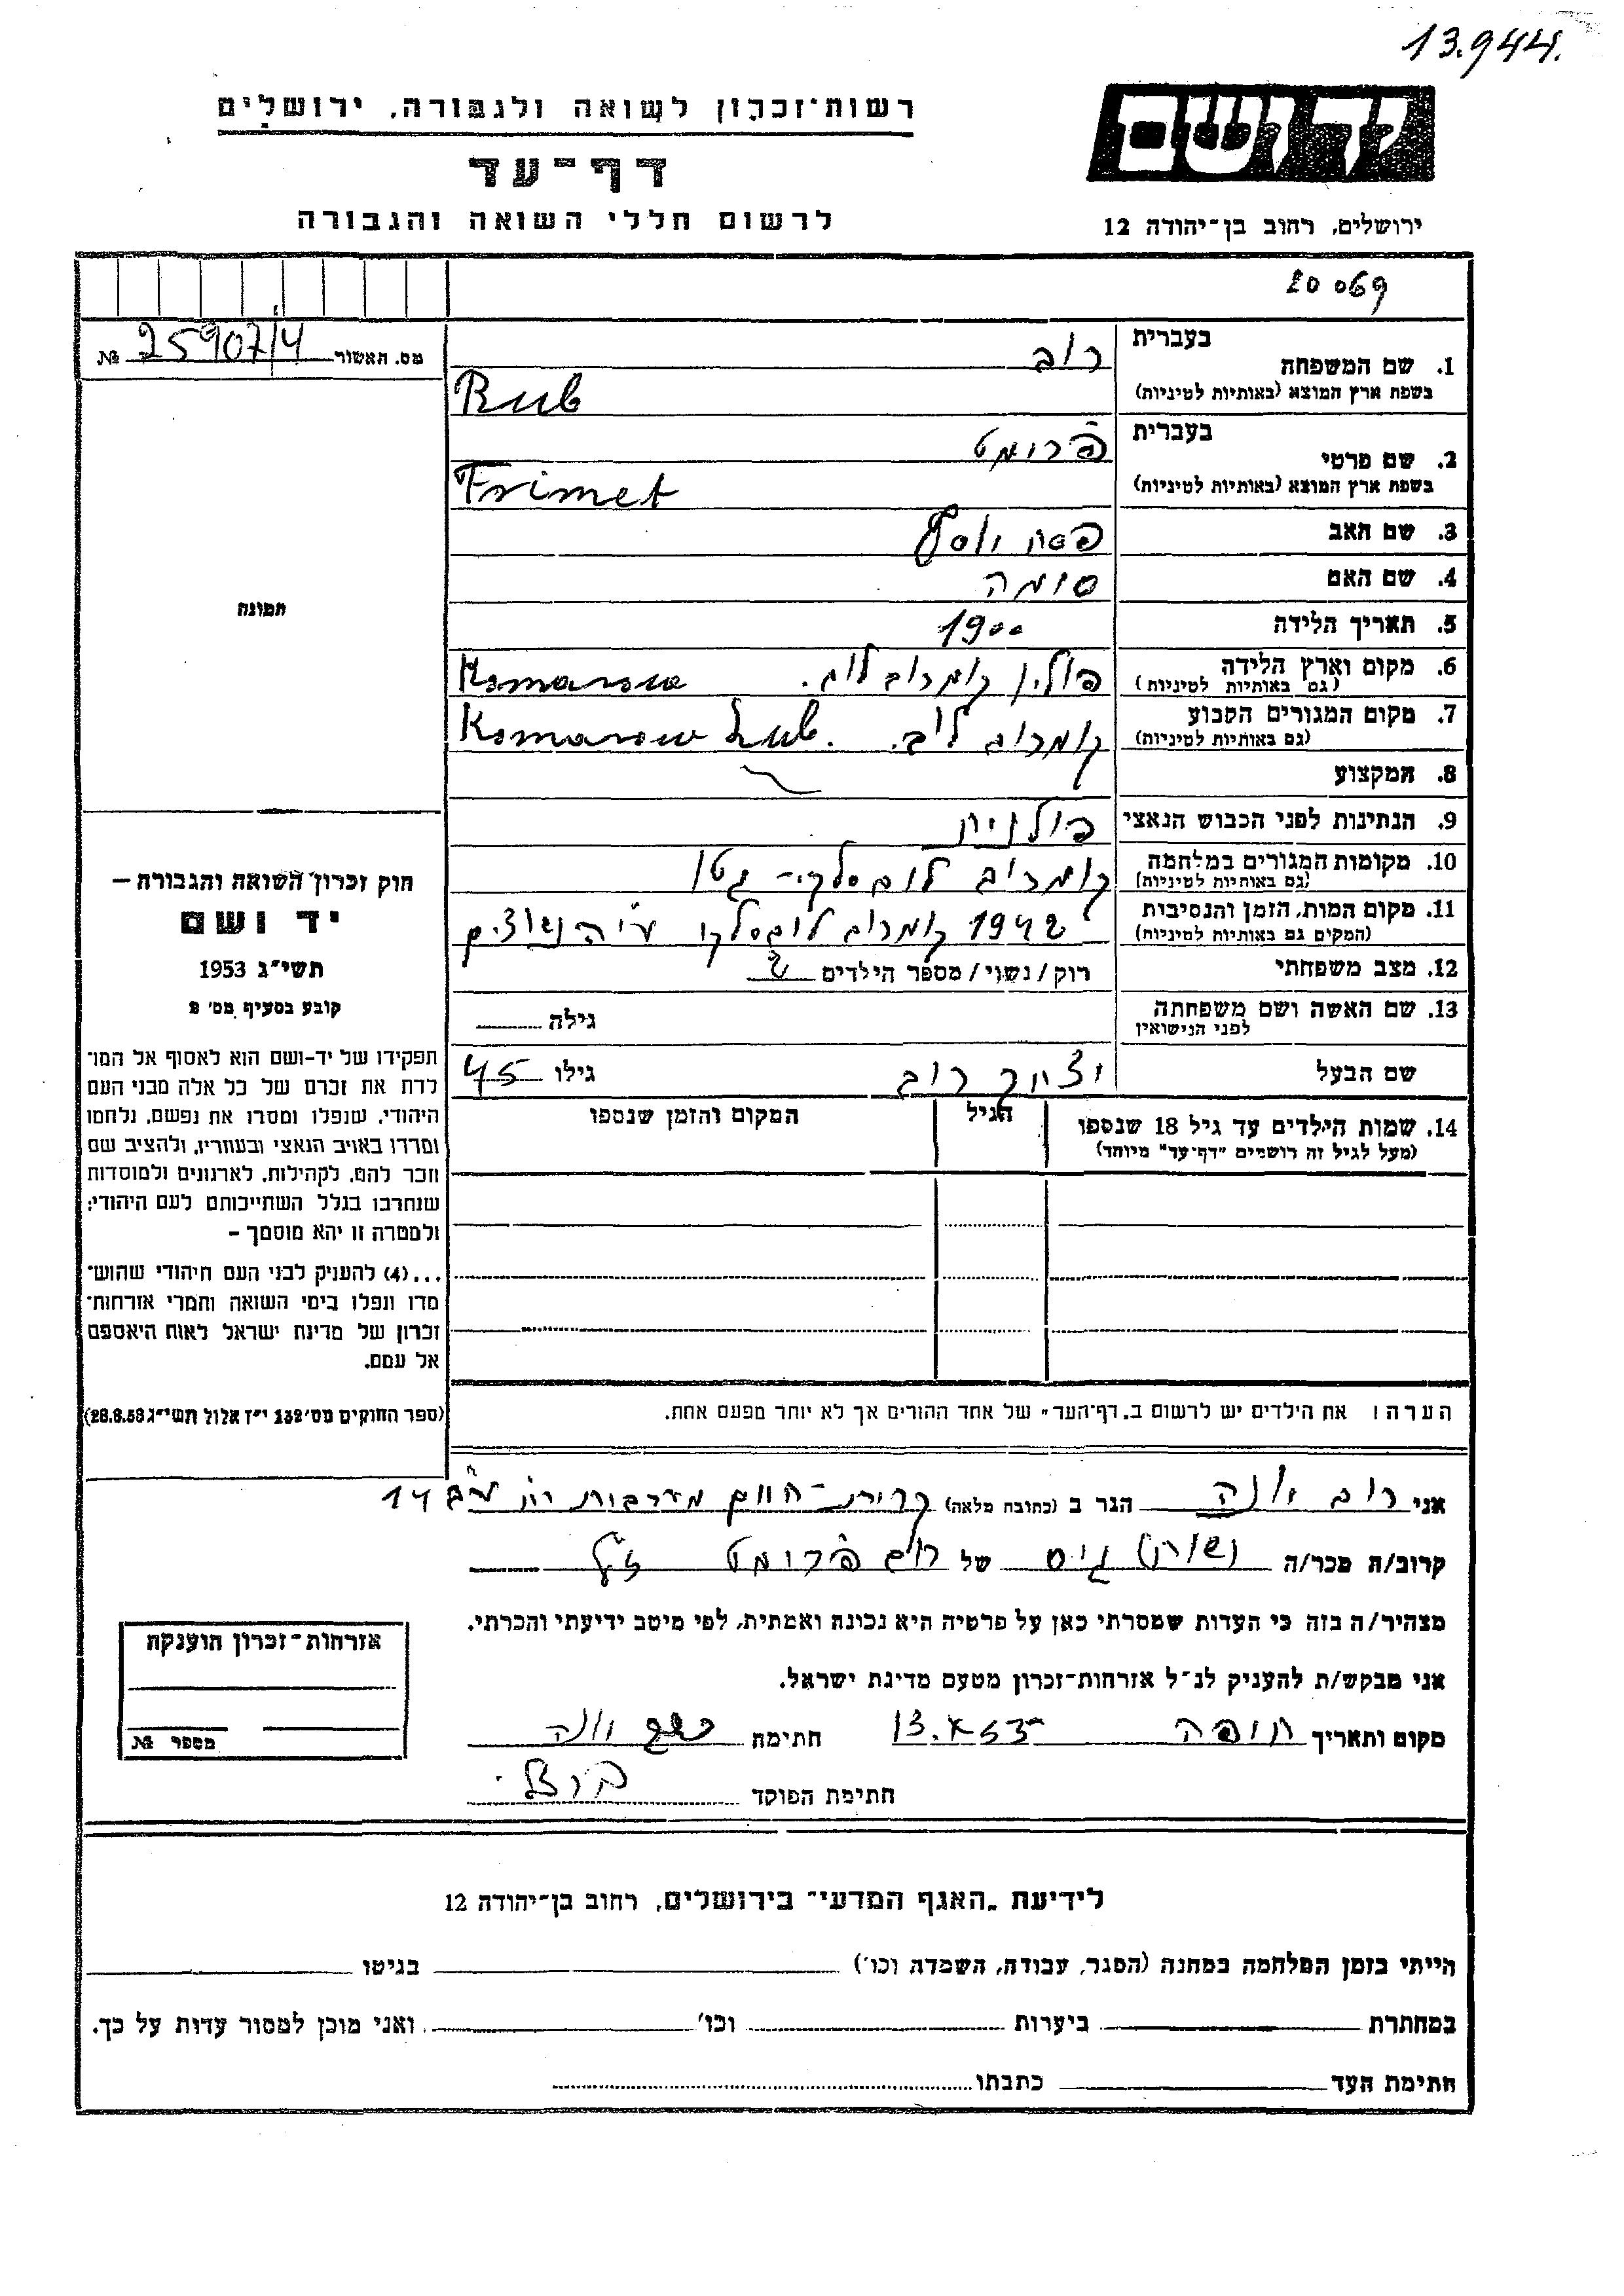 13.944.
רשות־זכרון לשואה ולגבורה, ירושלים
יד ושם
דף־עד
לרשום חללי השואה והגבורה
ירושלים, רחוב בן־יהודה 12
20069
מס. תאשור 25907/4 №
בעברית
1. שם המשפחה רוב
בשפת ארץ המוצא (באותיות לטיניות) Rub
בעברית
2. שם פרטי פרומט
בשפת ארץ המוצא (באותיות לטיניות) Frimet
3. שם האב פסח יוסף
4. שם האם סומה
5. תאריך הלידה 1900
6. מקום וארץ הלידה פולין קומרוב לוב. Komarow
(גם באותיות לטיניות)
7. מקום המגורים הקבוע קומרוב לוב. Komarow Lub.
(גם באותיות לטיניות)
8. המקצוע
9. הנתינות לפני הכבוש הנאצי פולנית
10. מקומות המגורים במלחמה קומרוב לובלסקי - גטו
(גם באותיות לטיניות)
11. מקום המות, הזמן והנסיבות 1942 קומרוב לובלסקי ע"י הנאצים
(המקום גם באותיות לטיניות)
12. מצב משפחתי רוק/נשוי/מספר הילדים 2
13. שם האשה ושם משפחתה גילה
לפני הנישואין
שם הבעל יצחק רוב גילו 45
14. שמות הילדים עד גיל 18 שנספו הגיל המקום והזמן שנספו
(מעל לגיל זה רושמים "דף־עד" מיוחד)
תמונה
חוק זכרון השואה והגבורה —
יד ושם
תשי"ג 1953
קובע בסעיף מס' 2
תפקידו של יד-ושם הוא לאסוף אל המו־
לדת את זכרם של כל אלה מבני העם
היהודי, שנפלו ומסרו את נפשם, נלחמו
ומרדו באויב הנאצי ובעוזריו, ולהציב שם
וזכר להם, לקהילות, לארגונים ולמוסדות
שנחרבו בגלל השתייכותם לעם היהודי;
ולמטרה זו יהא מוסמך –
...(4) להעניק לבני העם היהודי שהוש־
מדו ונפלו בימי השואה והמרי אזרחות־
זכרון של מדינת ישראל לאות היאספם
אל עמם.
(ספר החוקים מס' 132 י"ז אלול תשי"ג 28.8.53)
הערה: את הילדים יש לרשום ב„דף־העד" של אחד ההורים אך לא יוחד מפעם אחת.
אני רוב יונה הגר ב (כתובת מלאה) קרית-חיים מערבית רח' 14
קרוב/ה מכר/ה גיס של רוב פרומט ז"ל
מצהיר/ה בזה כי העדות שמסרתי כאן על פרטיה היא נכונה ואמתית, לפי מיטב ידיעתי והכרתי.
אני מבקש/ת להעניק לנ"ל אזרחות־זכרון מטעם מדינת ישראל.
מקום ותאריך חיפה 13.X.55 חתימה רוב יונה
חתימת הפוקד
אזרחות־זכרון הוענקה
מספר №
לידיעת „האגף המדעי" בירושלים, רחוב בן־יהודה 12
הייתי בזמן המלחמה במחנה (הסגר, עבודה, השמדה וכו') בגיטו
במחתרת ביערות וכו' ואני מוכן למסור עדות על כך.
חתימת העד כתבתו